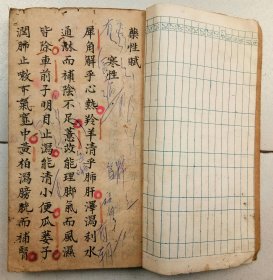 藥性賦
寒性
犀角解乎心熱羚羊清乎肺肝澤瀉利水
通淋而補陰不足薏苡能理脚氣而風濕
皆除車前子明目止瀉能清小便瓜蔞子
潤肺止嗽下氣寬中黃柏瀉膀胱而補腎